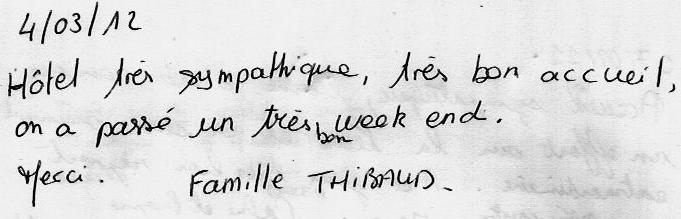 4/03/12
Hôtel très sympathique, très bon accueil,
on a passé un très bon week end.
Merci. Famille THIBAUD.